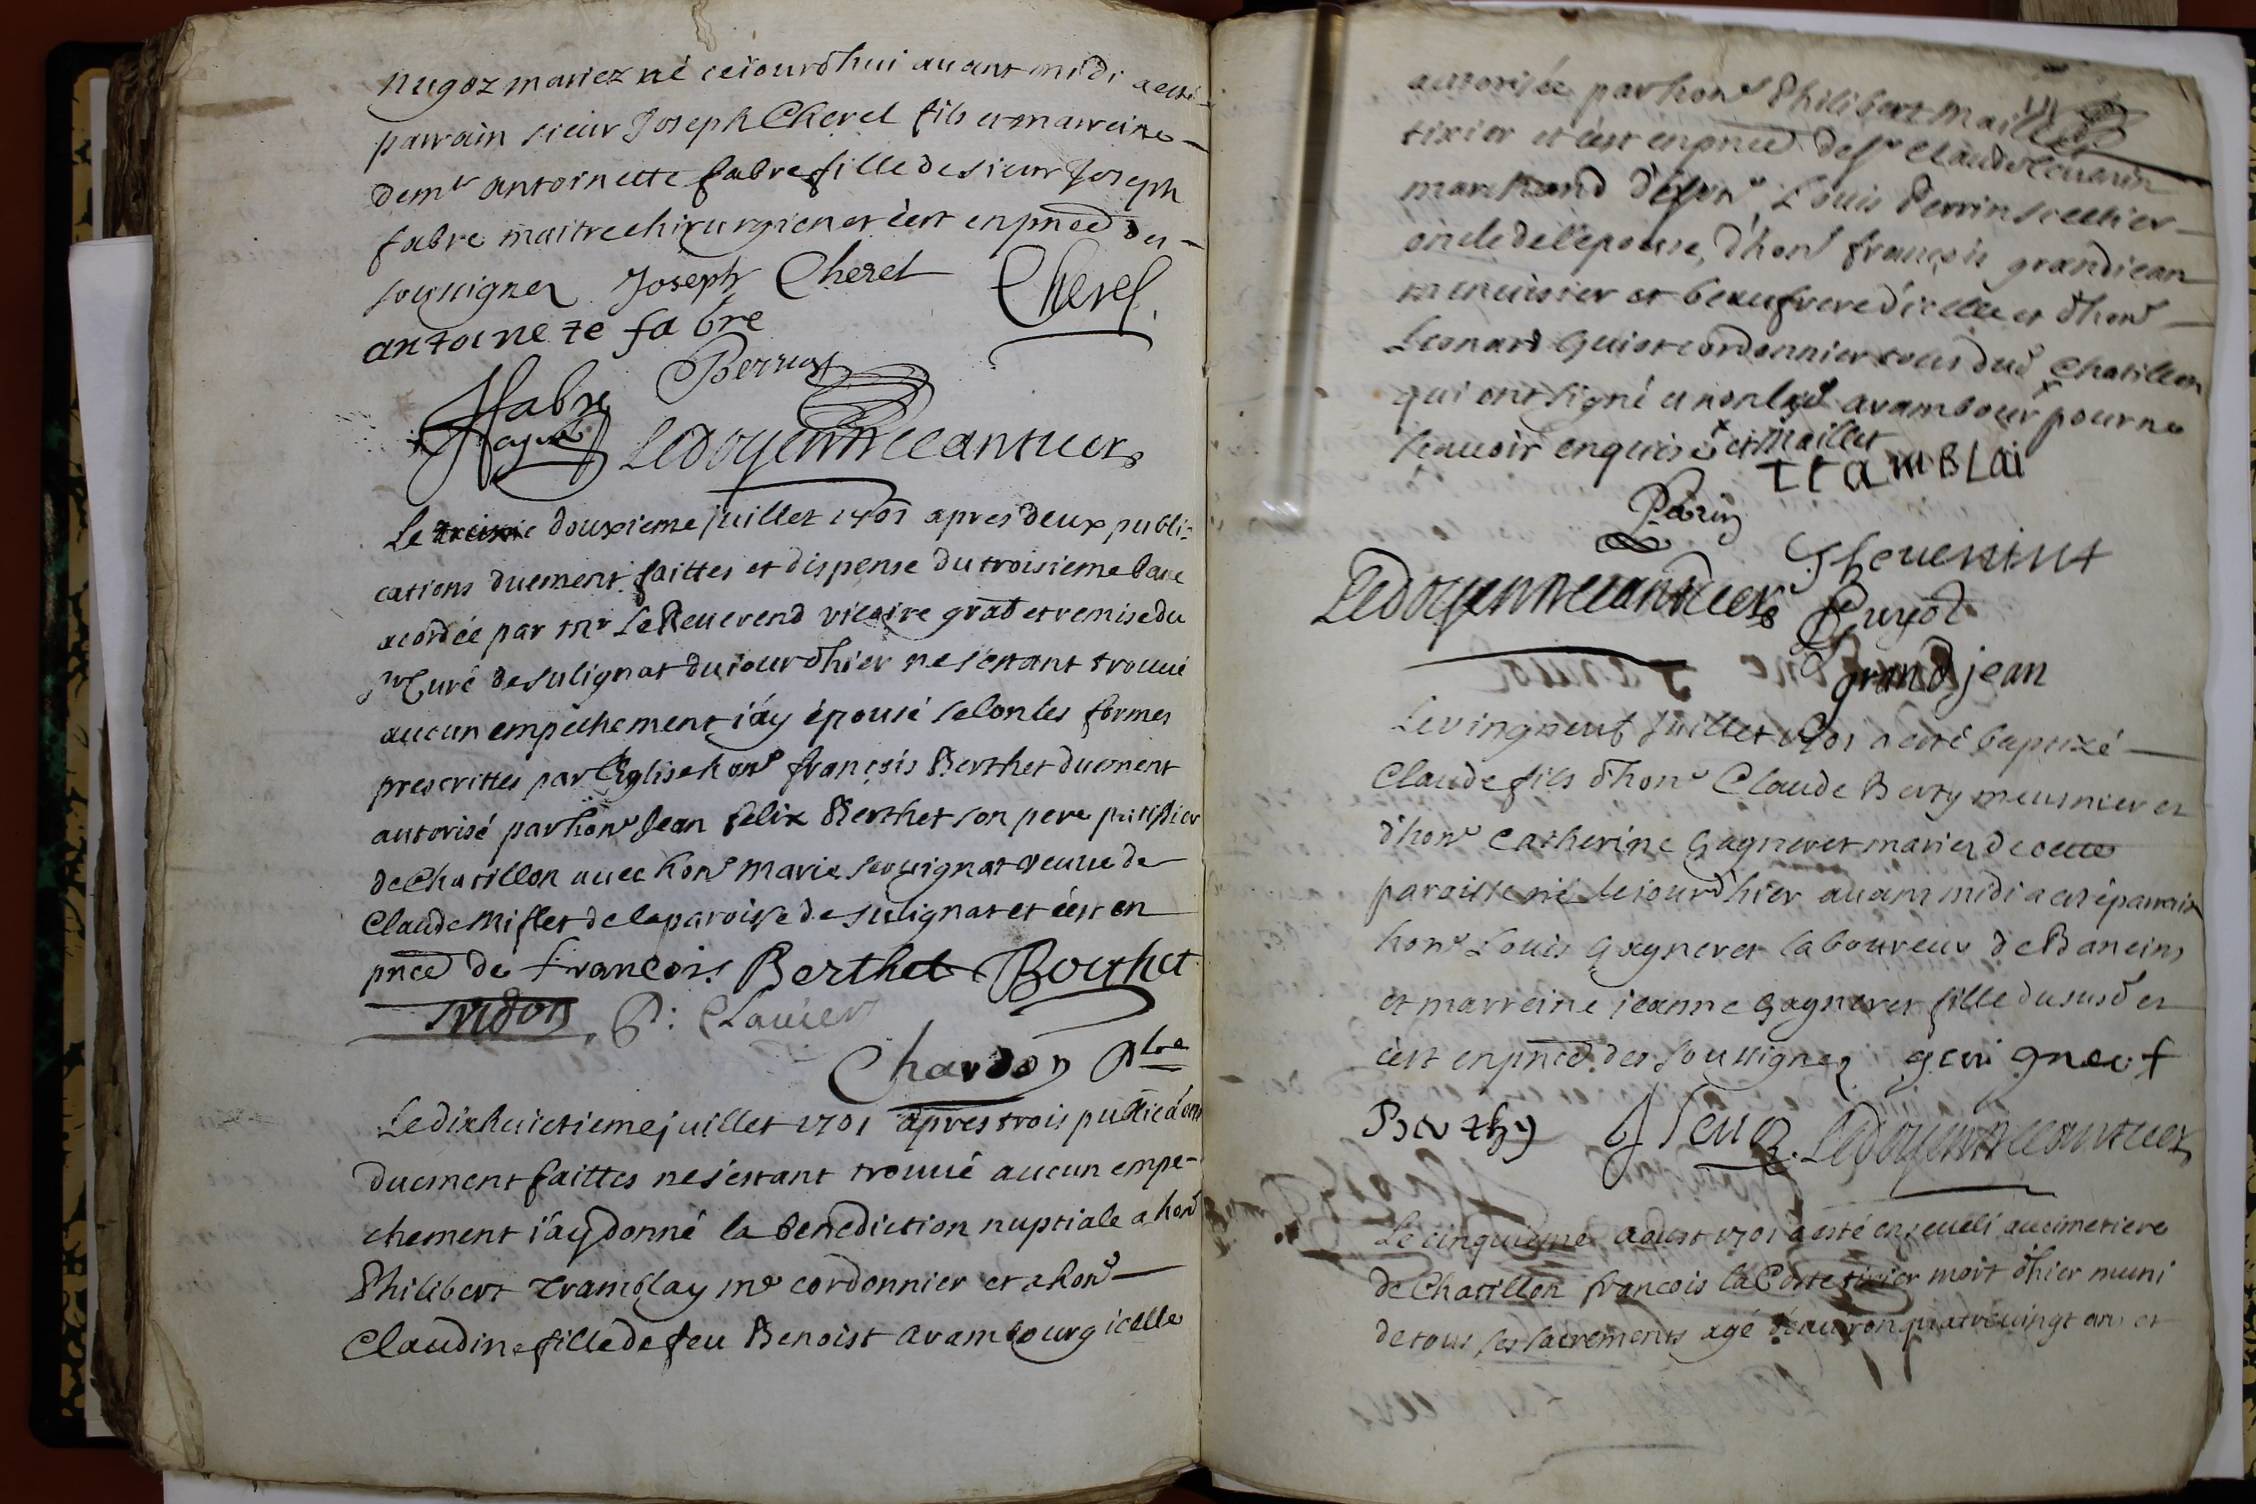 nugoz mariez né cejourdhui avant midi a esté
parrain sieur Joseph Cheret fils et marreine
dem.lle antoinette fabre fille de sieur Joseph
fabre maitre chirurgien et c'est en pnce des
soussignez Joseph Cheret Cheret
antoinete fabre
Perruot
Fabre
Ledoyen
Le douxieme juillet 1701 apres deux publi-
cations duement faittes et dispense du troisieme ban
acordée par mr Le Reverend vicaire gral et remise du
sr Curé de sulignat du jour d'hier ne s'estant trouvé
aucun empêchement j'ay épousé selon les formes
prescrittes par l'Eglise hone françois Berthet duement
autorisé par hone Jean felix Berthet son pere
de Chatillon avec hone Marie souvignat veuve de
Claude Miflet de la paroisse de sulignat et c'est en
pnce de francois Berthet Berthet
P: Clavier
Chardon Ptre
Le dixhuictieme juillet 1701 apres trois publicaons
duement faittes ne s'estant trouvé aucun empe-
chement j'ay donné la benediction nuptiale a hone
Philibert Tramblay me cordonnier et a hone
Claudine fille de feu Benoist avambourg icelle
autorisée par hone Philibert Maillet
tixier et c'est en pnce de sr Claude
marchand d'hone Louis Perrin scellier
oncle de l'épouse, d'hone françois grandjean
menuisier et beaufrere d'icelle et d'hone
Leonard Guiot cordonnier tous dud Chatillon
qui ont signé et non lad avambour x pour ne
sçavoir enquis x et Maillet
tramblai
Perrin
Theuenint
Ledoyen Guyot
grandjean
Le vingneuf juillet 1701 a esté baptizé
Claude fils d'hone Claude Berty meusnier et
d'hone Catherine Gagneret mariez de cette
paroisse né le jour d'hier avant midi a esté parrain
hone Louis Gagneret laboureur de Baneins
et marreine jeanne Gagneret fille du susd et
c'est en pnce des soussignez
Berthy Ledoyen
Le cinquieme aoust 1701 a esté enseveli au cimetiere
de Chatillon francois la Coste tixier mort d'hier muni
de tous ses sacrements agé d'environ quatrevingt ans et